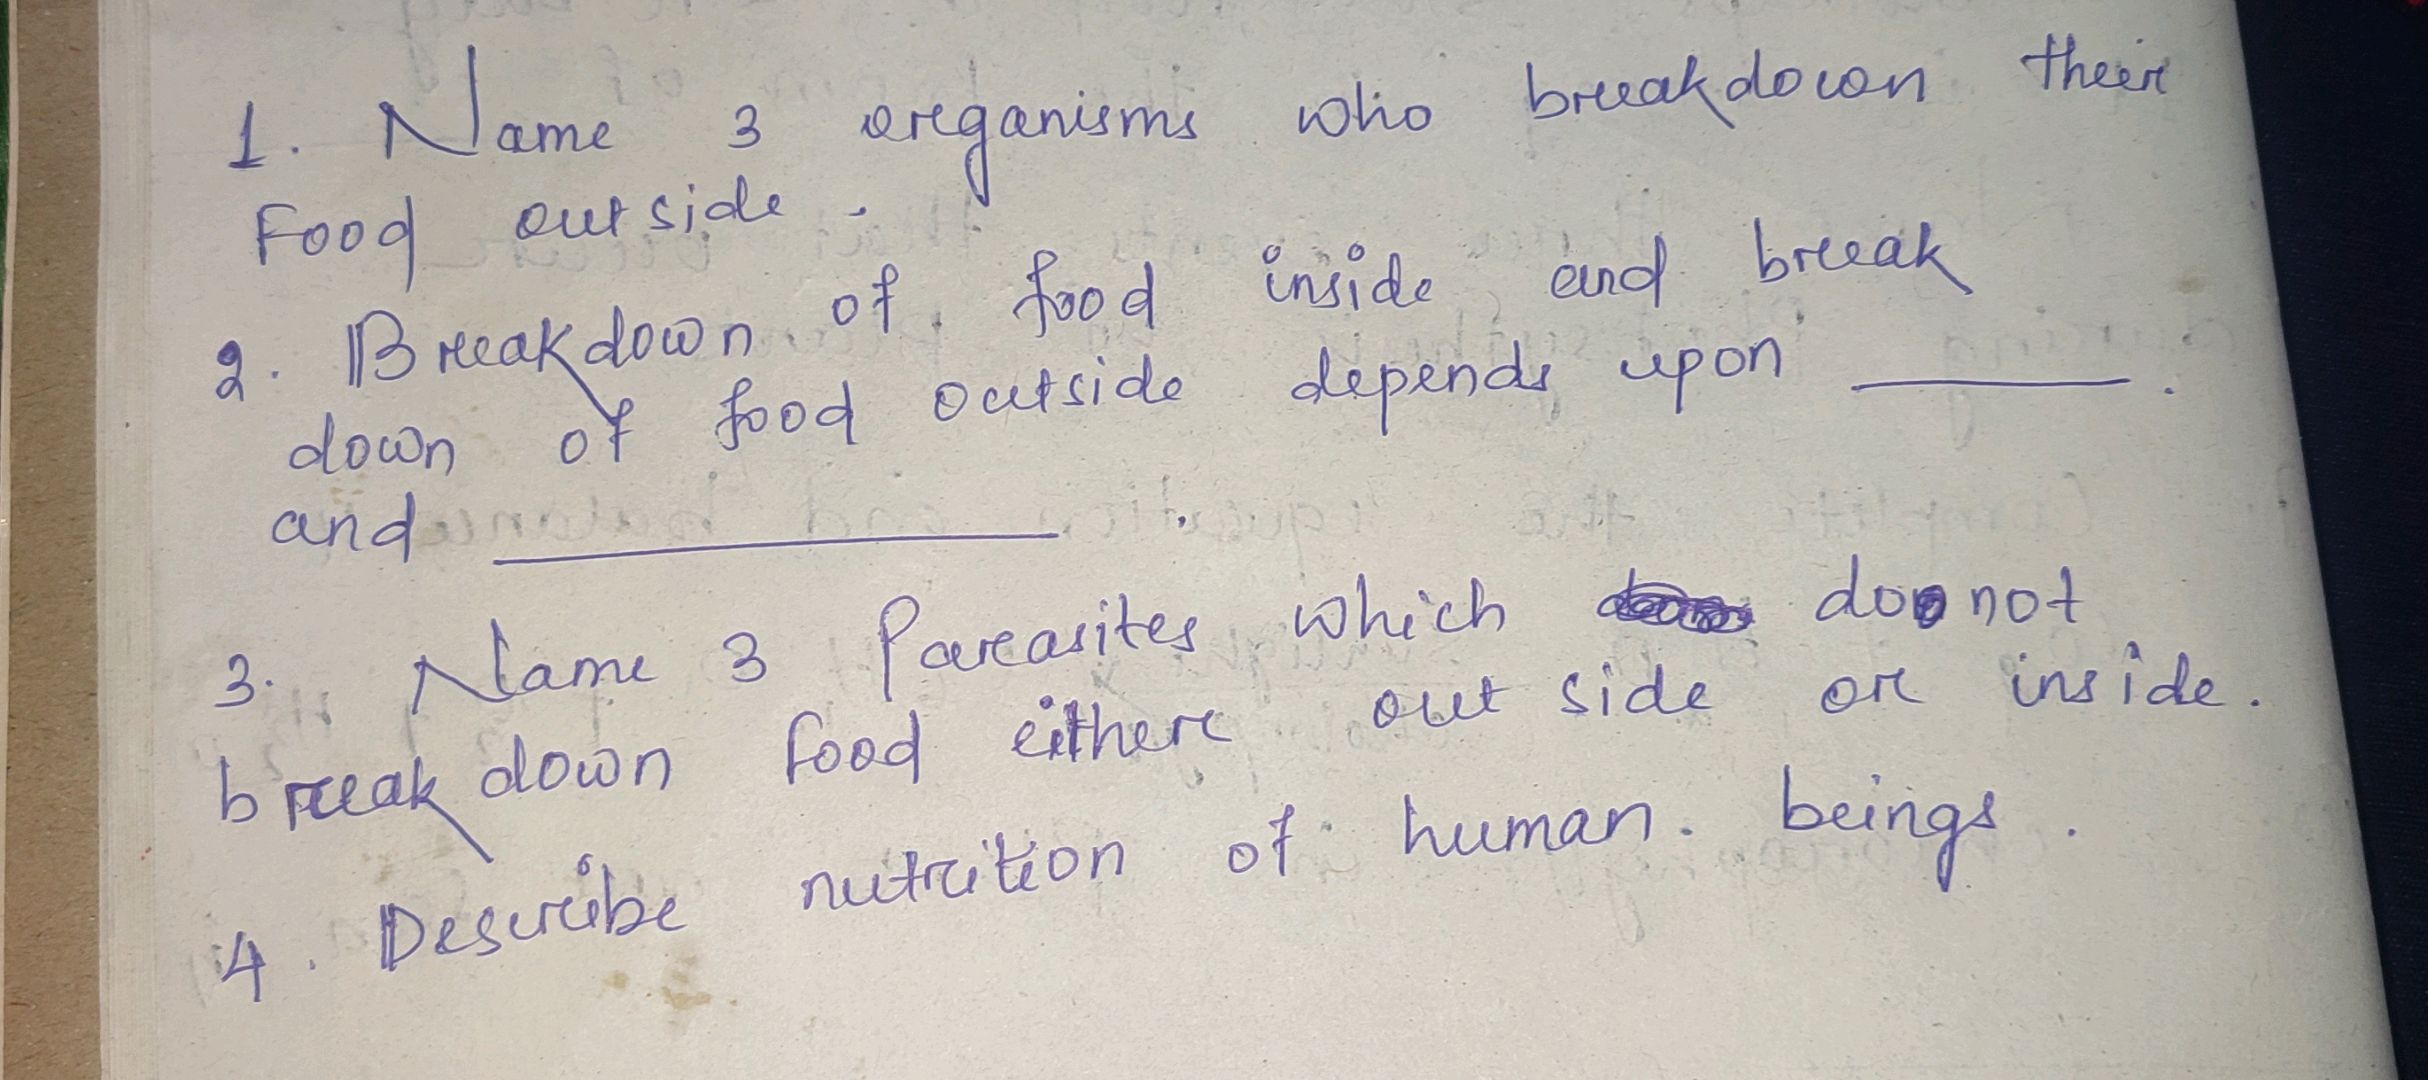 1. Name 3 organisms who breakdown their
Food outside.
2. Breakdown of food inside and break
down of food outside depends upon ______.
and ______.
3. Name 3 Parasites which do not
break down food either out side or inside.
4. Describe nutrition of human. beings.